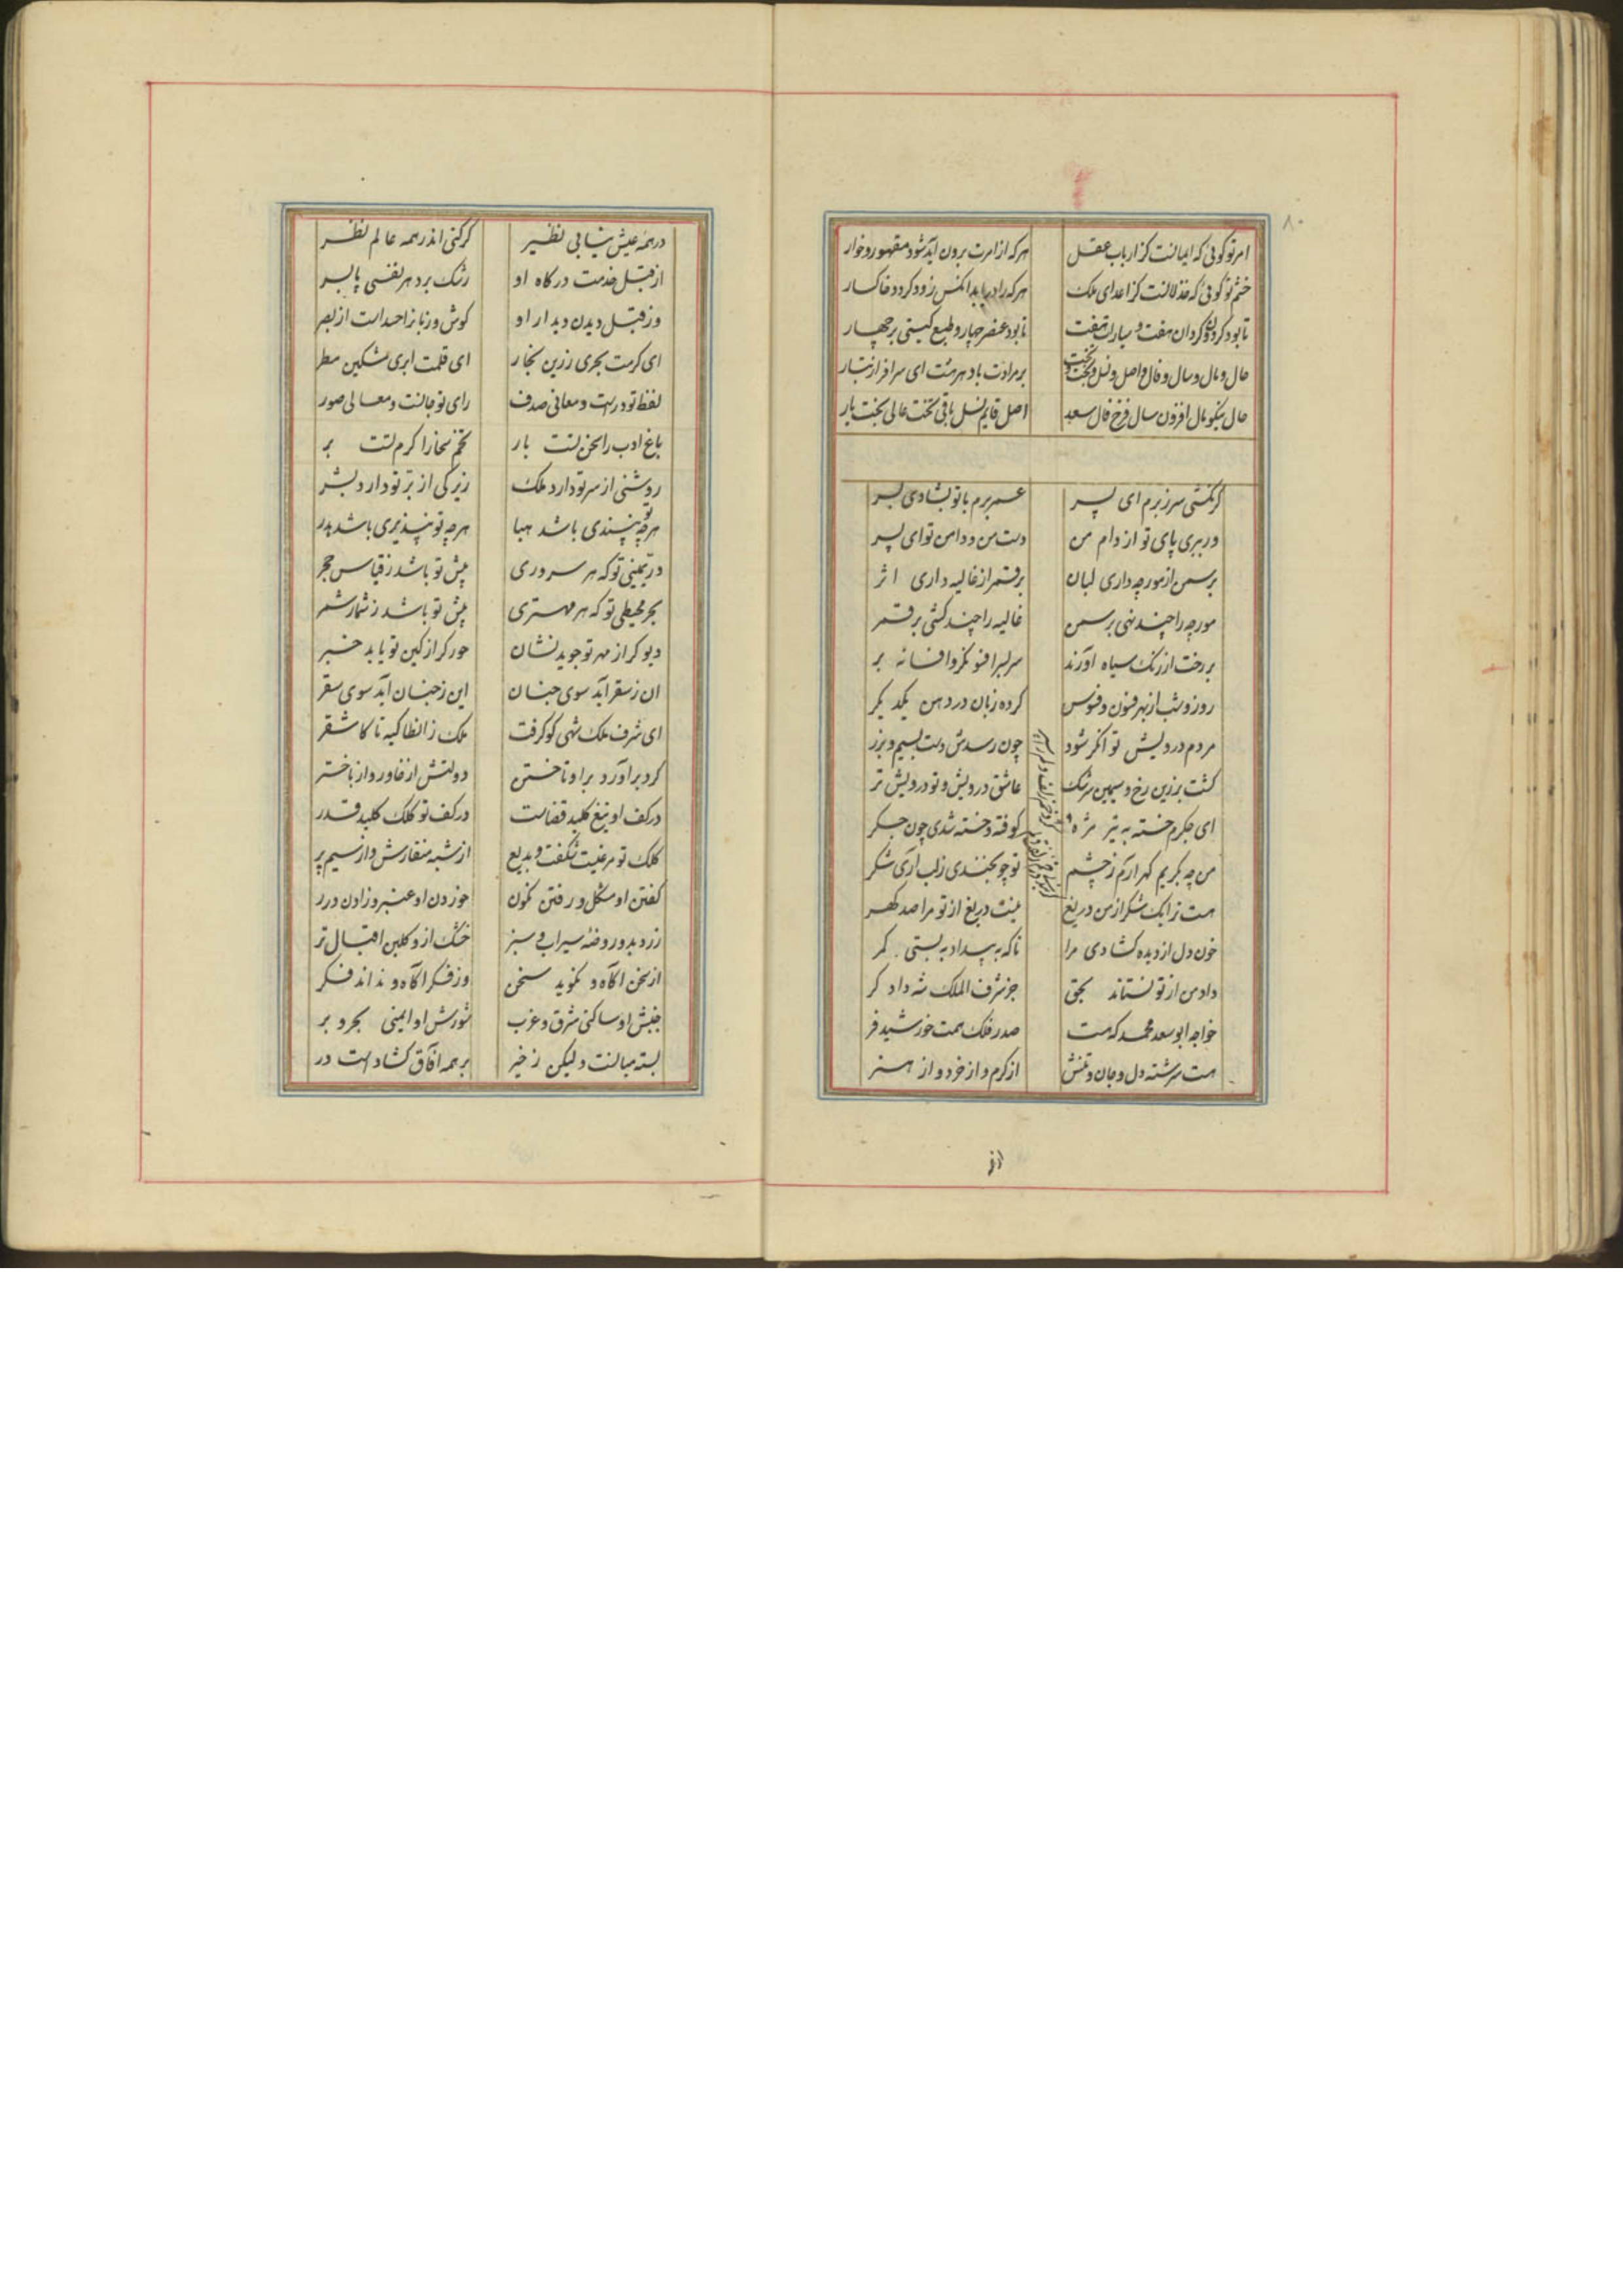 ۸۰
امر تو کوئی که ایمانست کز ارباب عقل هرکه از امرت برون آید شود مقهور و خوار
خشم تو کوئی که خذلانست کز اعدای ملک هرکه را دریابد انکس زود کردد خاکسار
تا بود کردون کردان هفت و سیارات هفت تا بود عنصر چهار و طبع کیتی بر چهار
حال و مال و سال و فال و اصل و نسل و تخت و بخت بر مرادت باد هر هشت ای سرافراز تبار
حال نیکو مال افزون سال فرخ فال سعد اصل قایم نسل باقی تخت عالی بخت یار
کر نکشی سر ز برم ای پسر عمر برم با تو بشادی بسر
ور ببری پای تو از دام من دست من و دامن تو ای پسر
بر سمن از مورچه داری لبان بر قمر از غالیه داری اثر
مورچه را چند نهی بر سمن غالیه را چند کشی بر قمر
بر رخت از زنک سپاه اورند سر بسر افسونکر و افسانه بر
روز و شب از بهر فنون و فسوس کرده زبان در دهن یکدیکر
مردم درویش توانکر شود چون رسدش دست بسیم و بزر
کشت بزرین رخ و سیمین سرشک عاشق درویش و تو درویش تر
ای جکرم خسته به تیر مژه کوفته و خسته شدی چون جکر
من چه بکریم کهر ارم ز چشم تو چو بخندی ز لب اری شکر
هست ترا یک شکر از من دریغ نیست دریغ از تو مرا صد کهر
خون دل از دیده کشادی مرا تا که به بیداد به بستی کمر
داد من از تو نستاند بحق جز شرف الملک شه دادکر
خواجه ابو سعد محمد که هست صدر فلک همت خورشید فر
هست سرشته دل و جان و تنش از کرم و از خرد و از هنر
در همه عیش نیابی نظیر کر کنی اندر همه عالم نظر
از قبل خدمت درکاه او رشک برد هر نفسی پا بسر
وز قبل دیدن دیدار او کوش و زبانرا حسد است از بصر
ای کرمت بحری زرین بخار ای قلمت ابری مشکین مطر
لفظ تو درست و معانی صدف رای تو جانست و معالی صور
باغ ادب را سخن تست بار تخم سخا را کرم تست بر
روشنی از سر تو دارد ملک زیرکی از بر تو دارد بشر
هرچه تو نپسندی باشد هبا هرچه تو نپذیری باشد هدر
در یتیمی تو که هر سروری پیش تو باشد ز قیاس حجر
بحر محیطی تو که هر مهتری پیش تو باشد ز شمار شمر
دیو کر از مهر تو جوید نشان حور کر از کین تو یابد خبر
ان ز سقر آید سوی جنان این ز جنان آید سوی سقر
ای شرف ملک شهی کو کرفت ملک ز انطاکیه تا کاشغر
کرد براورد براو تاختن دولتش از خاور و از باختر
در کف او تیغ کلید قضاست در کف تو کلک کلید قدر
کلک تو مرغیست شکفت و بدیع از شبه منقارش و از سیم پر
کفتن او مشکل و رفتن نکون خوردن او عنبر و زادن درر
زرد بدو روضه سیراب و سبز خشک ازو کلبن اقبال تر
از سخن آکاه و نکوید سخن وز فکر آکاه و نداند فکر
جنبش او ساکنی شرق و غرب شورش او ایمنی بحر و بر
بسته میانست ولیکن ز خیر بر همه آفاق کشادست در